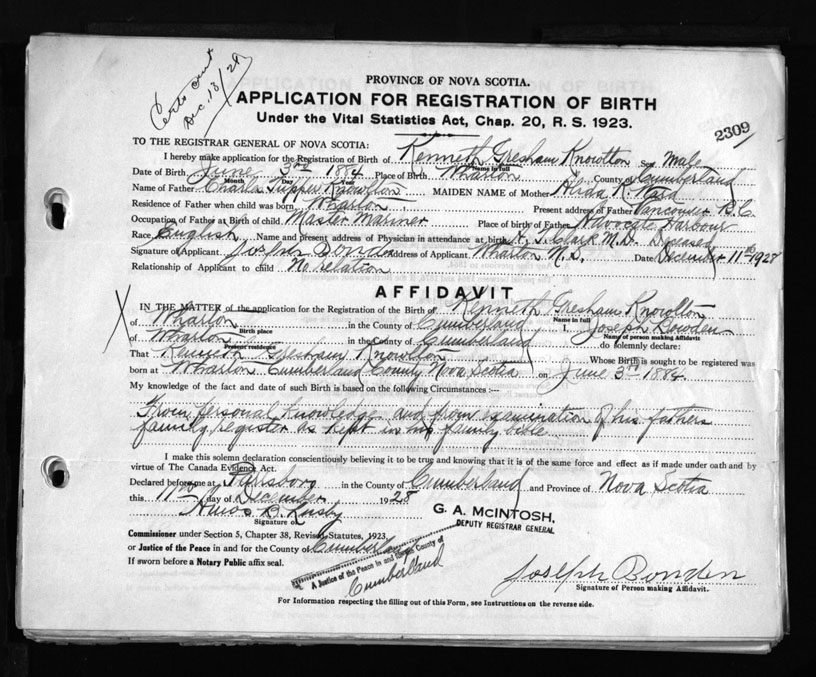 Certs sent
Dec. 13/28
PROVINCE OF NOVA SCOTIA.
APPLICATION FOR REGISTRATION OF BIRTH
Under the Vital Statistics Act, Chap. 20, R. S. 1923.
2309
TO THE REGISTRAR GENERAL OF NOVA SCOTIA:
I hereby make application for the Registration of Birth of Kenneth Gresham Knowlton Sex Male
Name in full
Date of Birth June 3rd 1884 Place of Birth Wharton County of Cumberland
Month Day Year
Name of Father Charls Tupper Knowlton MAIDEN NAME of Mother K. Ward
Residence of Father when child was born Wharton Present address of Father Vancouver B.C.
Occupation of Father at Birth of child Master Mariner Place of birth of Father Advocate Harbour
Race English Name and present address of Physician in attendance at birth Clark M.D. Diceased
Signature of Applicant Joseph Bowden Address of Applicant Wharton N.S. Date December 11th 1928
Relationship of Applicant to child No relation
AFFIDAVIT
IN THE MATTER of the application for the Registration of the Birth of Kenneth Gresham Knowlton
Name in full
of Wharton in the County of Cumberland I, Joseph Bowden
Birth place Name of person making Affidavit
of Wharton in the County of Cumberland do solemnly declare:
Present residence
That Kenneth Gresham Knowlton Whose Birth is sought to be registered was
born at Wharton Cumberland County Nova Scotia on June 3rd 1884
My knowledge of the fact and date of such Birth is based on the following Circumstances :—
From Personal knowledge and from examination of his fathers
family register as kept in family bible
I make this solemn declaration conscientiously believing it to be true and knowing that it is of the same force and effect as if made under oath and by
virtue of The Canada Evidence Act.
Declared before me at Parrsboro in the County of Cumberland and Province of Nova Scotia
this 11th day of December 1928
Amos B. Lusby
Signature of
G. A. McINTOSH,
DEPUTY REGISTRAR GENERAL
Commissioner under Section 5, Chapter 38, Revised Statutes, 1923,
or Justice of the Peace in and for the County of Cumberland
If sworn before a Notary Public affix seal.
A Justice of the Peace in and for the County of
Cumberland
Joseph Bowden
Signature of Person making Affidavit.
For Information respecting the filling out of this Form, see Instructions on the reverse side.